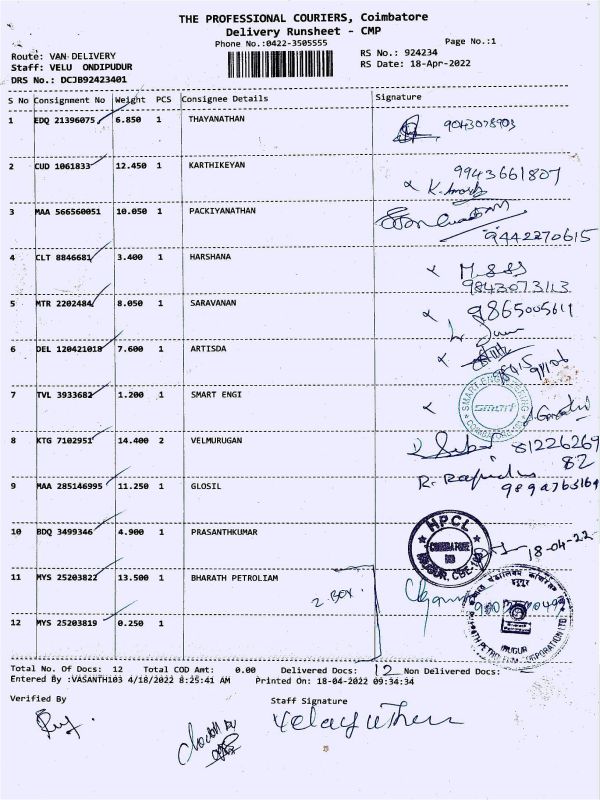 THE PROFESSIONAL COURIERS, Coimbatore
Delivery Runsheet - CMP
Phone No.:0422-3505555
Page No.:1
Route: VAN DELIVERY
RS No.: 924234
Staff: VELU ONDIPUDUR
RS Date: 18-Apr-2022
DRS No.: DCJB92423401
S No Consignment No Weight PCS Consignee Details Signature
1 EDQ 21396075 6.850 1 THAYANATHAN
9043078903
2 CUD 1061833 12.450 1 KARTHIKEYAN
9943661807
3 MAA 566560051 10.050 1 PACKIYANATHAN
9442270615
4 CLT 8846681 3.400 1 HARSHANA
9843073113
5 MTR 2202484 8.050 1 SARAVANAN
9865005611
6 DEL 120421018 7.600 1 ARTISDA
7 TVL 3933682 1.200 1 SMART ENGI
smart
8 KTG 7102951 14.400 2 VELMURUGAN
81226269
82
9 MAA 285146995 11.250 1 GLOSIL
10 BDQ 3499346 4.900 1 PRASANTHKUMAR
HPCL
18-04-22
11 MYS 25203822 13.500 1 BHARATH PETROLIAM
2 BOX
12 MYS 25203819 0.250 1
IRUGUR
Total No. Of Docs: 12 Total COD Amt: 0.00 Delivered Docs: 12 Non Delivered Docs:
Entered By :VASANTH103 4/18/2022 8:25:41 AM Printed On: 18-04-2022 09:34:34
Verified By
Staff Signature